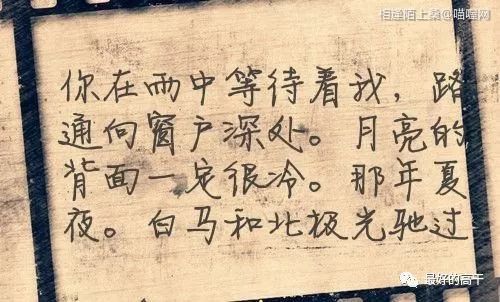 相逢陌上桑@喵喔网
你在雨中等待着我，路
通向窗户深处。月亮的
背面一定很冷。那年夏
夜。白马和北极光驰过
最好的高干